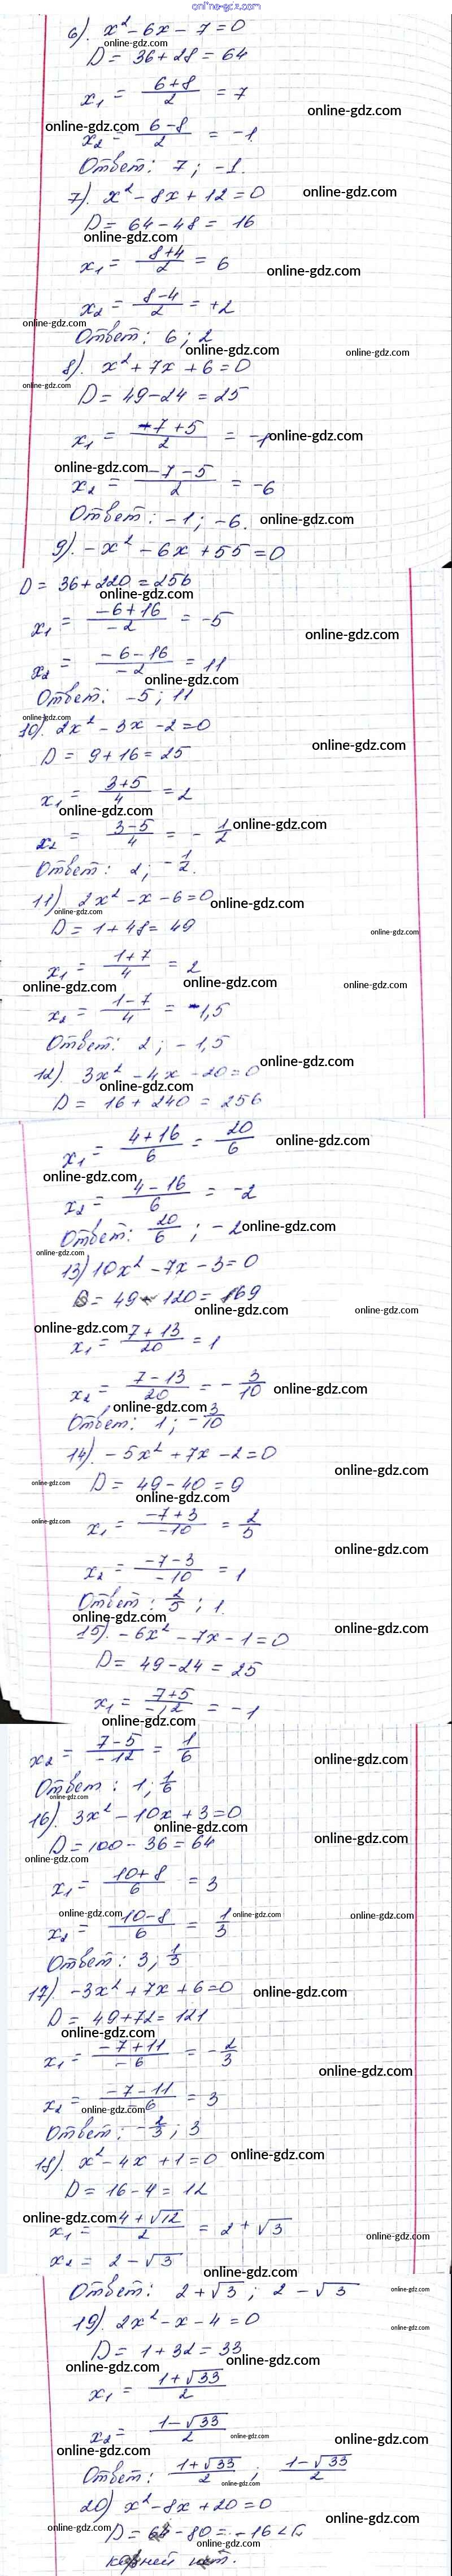 online-gdz.com
6). x² - 6x - 7 = 0
online-gdz.com
D = 36 + 28 = 64
x₁ = (6+8)/2 = 7
online-gdz.com
online-gdz.com
x₂ = (6-8)/2 = -1.
Ответ: 7; -1.
7). x² - 8x + 12 = 0
online-gdz.com
D = 64 - 48 = 16
online-gdz.com
x₁ = (8+4)/2 = 6
online-gdz.com
x₂ = (8-4)/2 = +2
online-gdz.com
Ответ: 6; 2
online-gdz.com
online-gdz.com
8). x² + 7x + 6 = 0
online-gdz.com
D = 49 - 24 = 25
x₁ = (-7+5)/2 = -1
online-gdz.com
online-gdz.com
x₂ = (-7-5)/2 = -6
Ответ: -1; -6.
online-gdz.com
9). -x² - 6x + 55 = 0
D = 36 + 220 = 256
online-gdz.com
x₁ = (-6+16)/-2 = -5
online-gdz.com
x₂ = (-6-16)/-2 = 11
online-gdz.com
Ответ: -5; 11
online-gdz.com
10). 2x² - 3x - 2 = 0
online-gdz.com
D = 9 + 16 = 25
x₁ = (3+5)/4 = 2
online-gdz.com
x₂ = (3-5)/4 = -1/2
online-gdz.com
Ответ: 2; -1/2.
11) 2x² - x - 6 = 0
online-gdz.com
online-gdz.com
D = 1 + 48 = 49
online-gdz.com
x₁ = (1+7)/4 = 2
online-gdz.com
online-gdz.com
online-gdz.com
x₂ = (1-7)/4 = -1,5
Ответ: 2; -1,5
online-gdz.com
12) 3x² - 4x - 20 = 0
online-gdz.com
D = 16 + 240 = 256
x₁ = (4+16)/6 = 20/6
online-gdz.com
online-gdz.com
x₂ = (4-16)/6 = -2
Ответ: 20/6; -2
online-gdz.com
online-gdz.com
13) 10x² - 7x - 3 = 0
D = 49 + 120 = 169
online-gdz.com
online-gdz.com
online-gdz.com
x₁ = (7+13)/20 = 1
x₂ = (7-13)/20 = -3/10
online-gdz.com
online-gdz.com
Ответ: 1; -3/10
14). -5x² + 7x - 2 = 0
online-gdz.com
online-gdz.com
D = 49 - 40 = 9
online-gdz.com
online-gdz.com
x₁ = (-7+3)/-10 = 2/5
online-gdz.com
x₂ = (-7-3)/-10 = 1
Ответ: 2/5; 1.
online-gdz.com
online-gdz.com
15). -6x² - 7x - 1 = 0
D = 49 - 24 = 25
x₁ = (7+5)/-12 = -1
online-gdz.com
x₂ = (7-5)/-12 = 1/6
online-gdz.com
Ответ: 1; 1/6
online-gdz.com
16). 3x² - 10x + 3 = 0
online-gdz.com
online-gdz.com
D = 100 - 36 = 64
online-gdz.com
x₁ = (10+8)/6 = 3
online-gdz.com
online-gdz.com
online-gdz.com
x₂ = (10-8)/6 = 1/3
Ответ: 3; 1/3
17). -3x² + 7x + 6 = 0
online-gdz.com
D = 49 + 72 = 121
online-gdz.com
x₁ = (-7+11)/-6 = -2/3
online-gdz.com
x₂ = (-7-11)/-6 = 3
online-gdz.com
Ответ: -2/3; 3
18). x² - 4x + 1 = 0
online-gdz.com
D = 16 - 4 = 12
online-gdz.com
x₁ = (4+√12)/2 = 2+√3
online-gdz.com
x₂ = 2 - √3
online-gdz.com
Ответ: 2+√3; 2-√3
online-gdz.com
19). 2x² - x - 4 = 0
online-gdz.com
D = 1 + 32 = 33
online-gdz.com
online-gdz.com
x₁ = (1+√33)/2
x₂ = (1-√33)/2
online-gdz.com
online-gdz.com
online-gdz.com
Ответ: (1+√33)/2; (1-√33)/2
online-gdz.com
20) x² - 8x + 20 = 0
online-gdz.com
D = 64 - 80 = -16 <
online-gdz.com
корней нет.